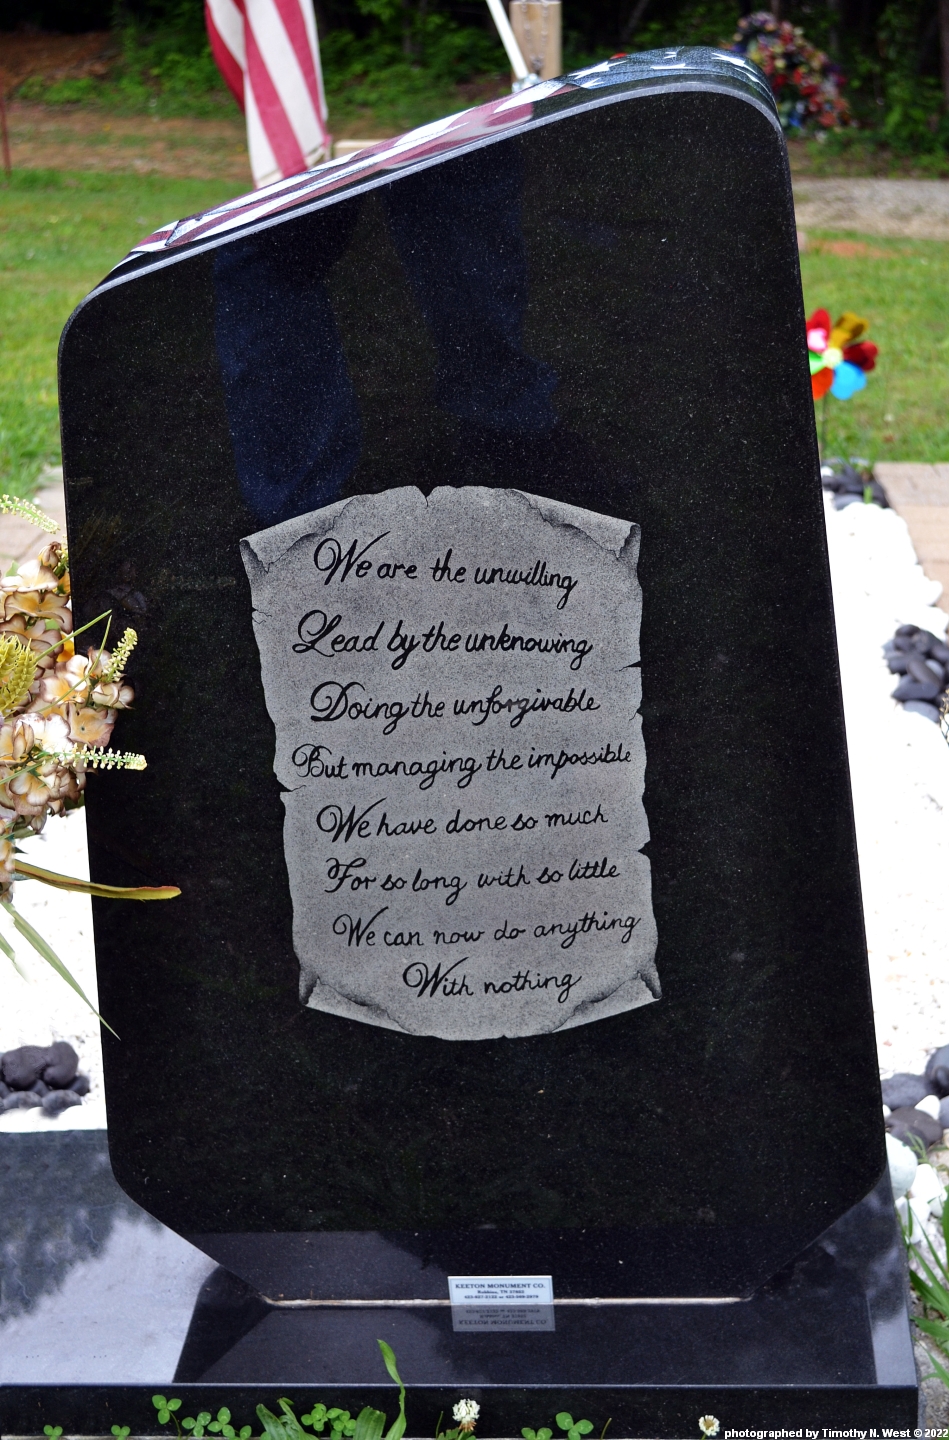 We are the unwilling
Lead by the unknowing
Doing the unforgivable
But managing the impossible
We have done so much
For so long with so little
We can now do anything
With nothing
KEETON MONUMENT CO.
Robbins, TN 37852
photographed by Timothy N. West © 2022